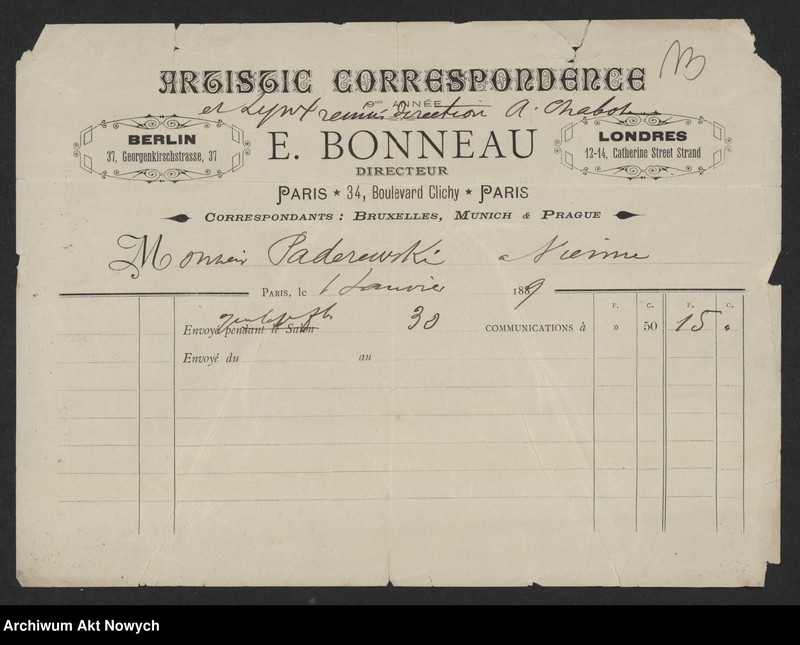 ARTISTIC CORRESPONDENCE
ANNÉE
et réunis direction A. Chabot
BERLIN
37, Georgenkirschstrasse, 37
E. BONNEAU
DIRECTEUR
LONDRES
12-14, Catherine Street Strand
PARIS ★ 34, Boulevard Clichy ★ PARIS
CORRESPONDANTS : BRUXELLES, MUNICH & PRAGUE
Monsieur Paderewski a Vienne
PARIS, le 1 Janvier 1889
F. C. F. C.
Envoyé pendant le Salon 30 COMMUNICATIONS à » 50 15 "
Envoyé du au
Archiwum Akt Nowych